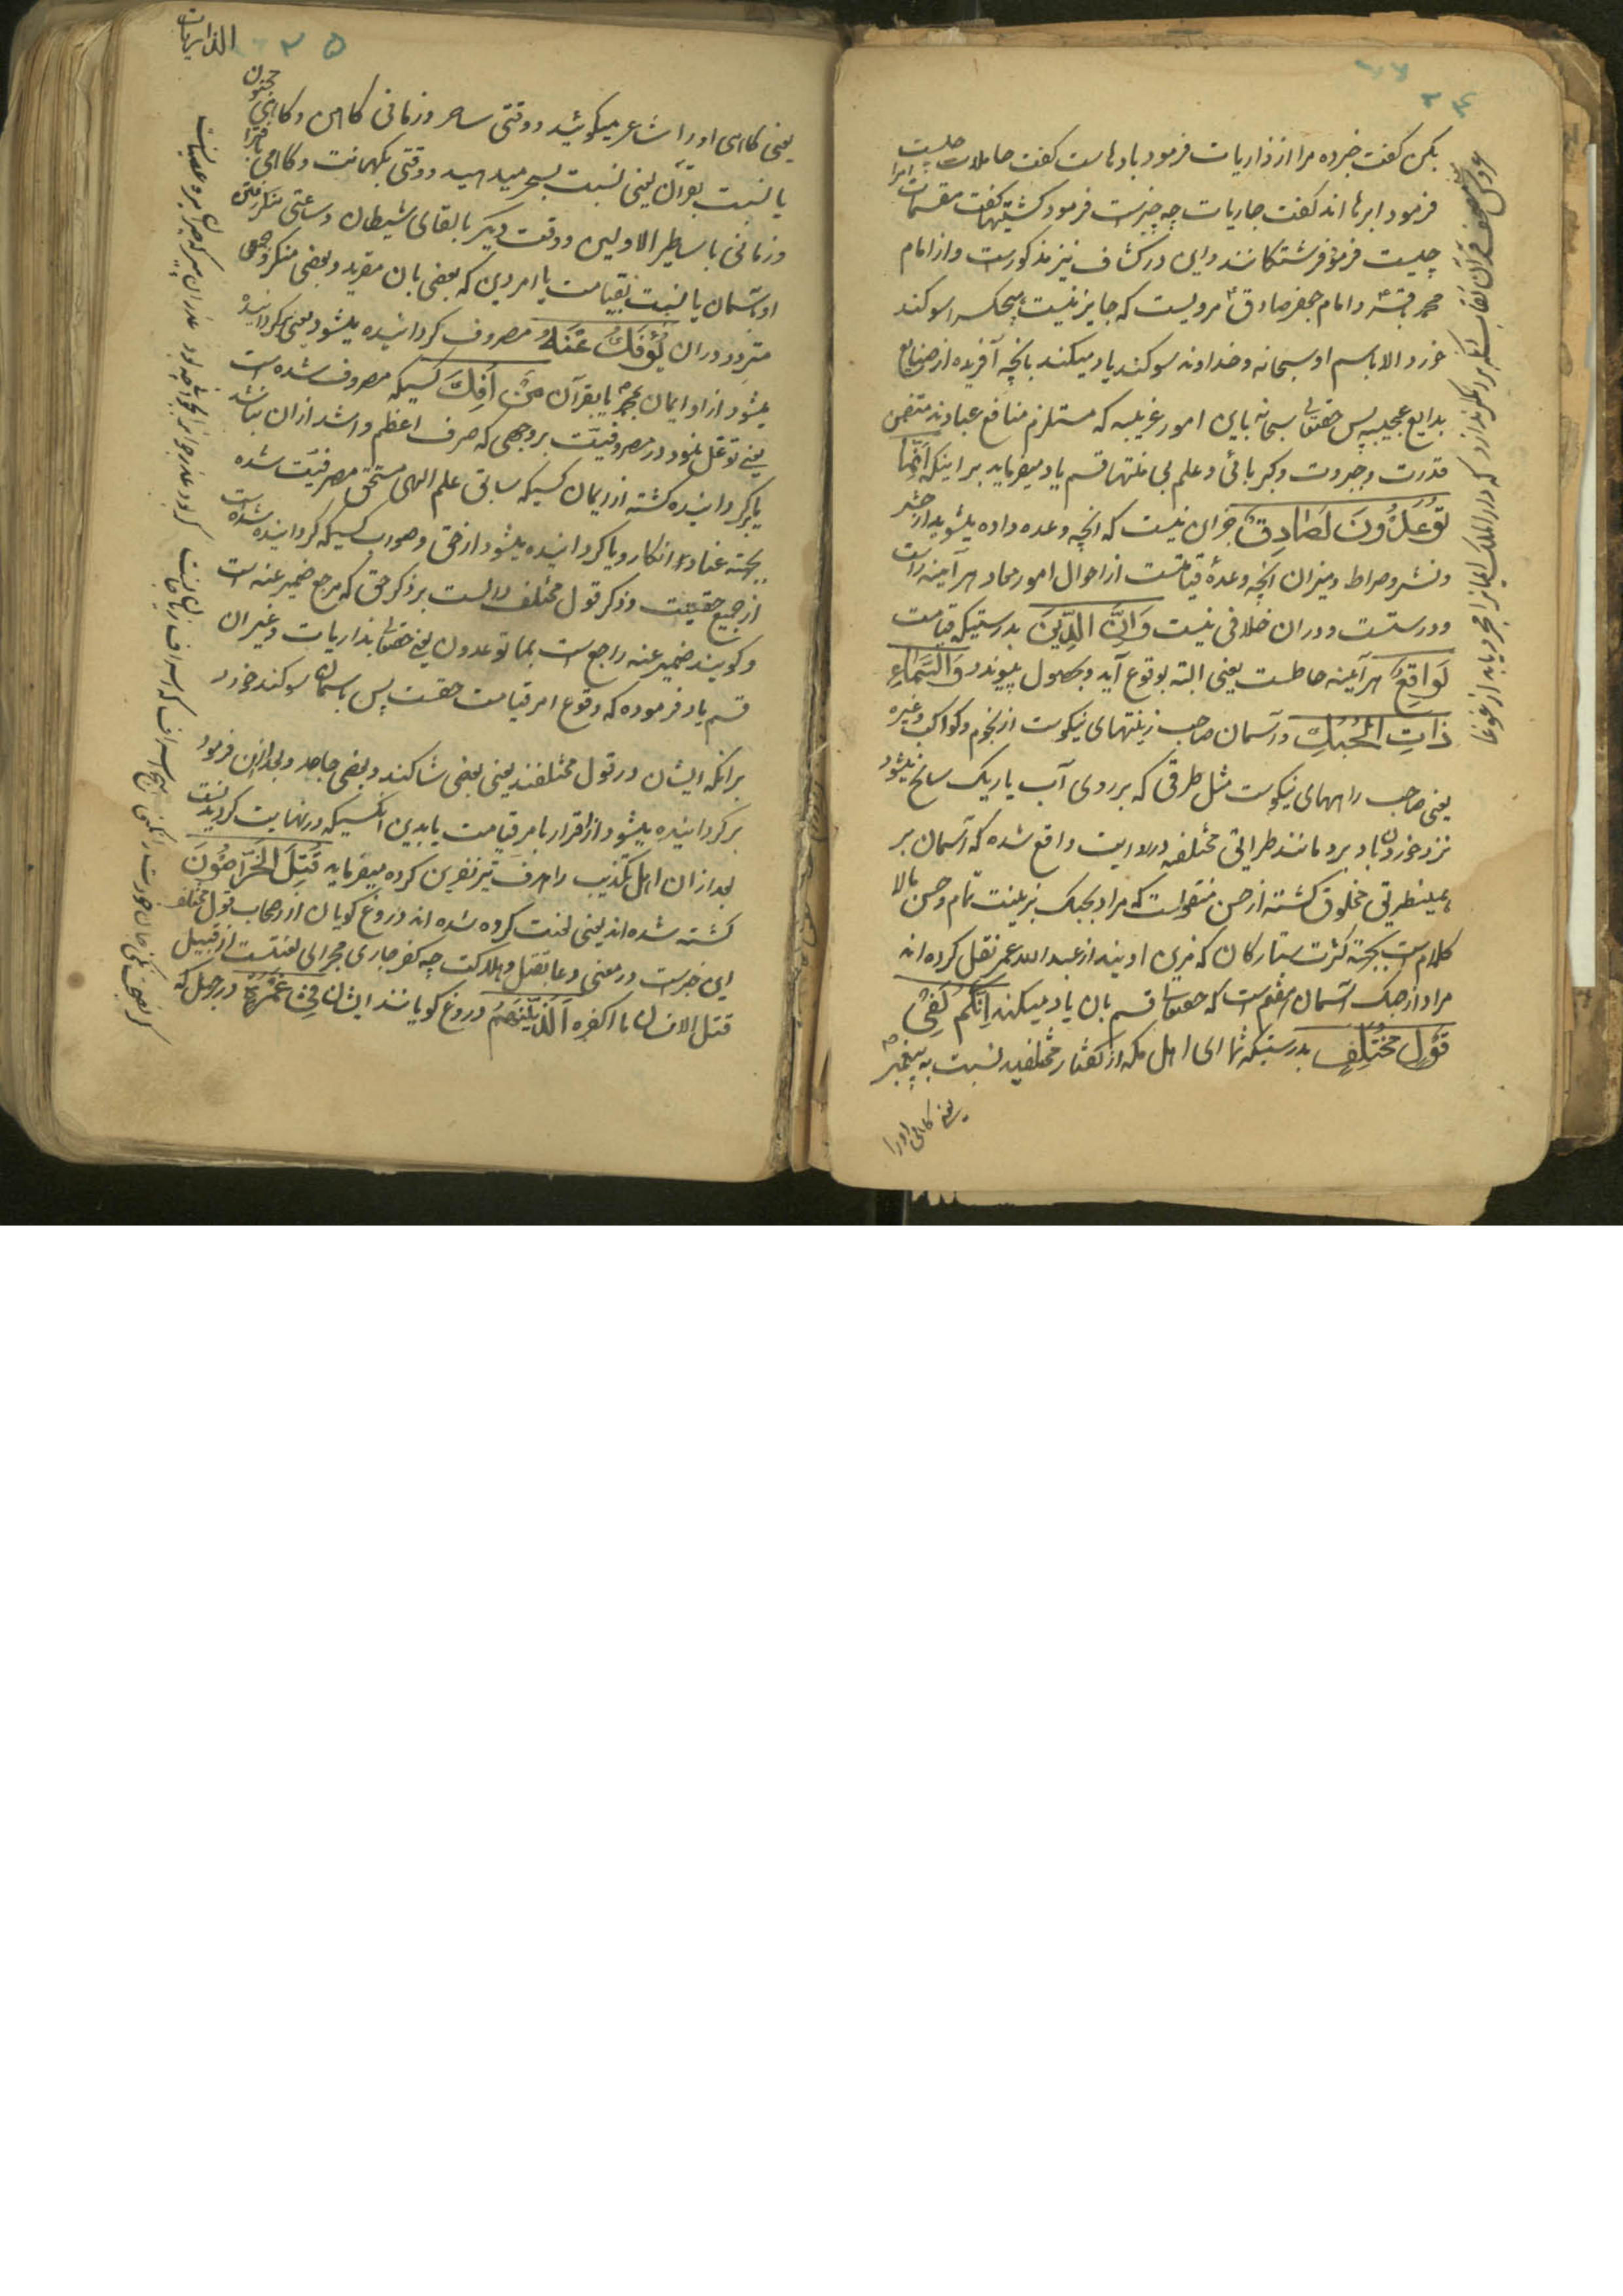 ۲۳۴
بکن گفت خبر ده مرا از ذاریات فرمود بادهاست گفت حاملات چیست
فرمود ابرها اند گفت جاریات چه چیزست فرمود کشتیها گفت مقسمات امرا
چیست فرمود فرشتگانند و این در کشاف نیز مذکورست و از امام
محمد باقر و امام جعفر صادق ع مرویست که جایز نیست هیچکس را سوکند
خورد الا باسم او سبحانه و خداوند سوکند یاد میکند بانچه آفریده از صنایع
بدایع عجیبه پس حقتعالی سبحانه باین امور غریبه که مستلزم منافع عبادند و متضمن
قدرت و جبروت و کبریائی و علم بی منتها قسم یاد میفرماید بر اینکه اِنَّما
تُوعَدُونَ لَصَادِقٌ جز این نیست که انچه وعده داده میشوید از حشر
و نشر و صراط و میزان انچه وعدهٔ قیامتست از احوال امور معاد هر آینه راست
و درستست و در ان خلافی نیست وَاِنَّ الدِّینَ بدرستیکه قیامت
لَوَاقِعٌ هر آینه حاصلست یعنی البته بوقوع آید و بحصول پیوندد وَالسَّمَاءِ
ذَاتِ الْحُبُكِ و آسمان صاحب زینتهای نیکوست از نجوم و کواکب و غیره
یعنی صاحب راههای نیکوست مثل طرقی که بر روی آب یا ریک سانح میشود
نزد خوردن باد برو مانند طرائق مختلفه در روایت واقع شده که آسمان بر
همینطریق مخلوق گشته از حسن منقولست که مراد بحبک زینت تمام و حسن بالا
کلام است بجهة کثرت ستارکان که مزین اویند از عبد الله عمر نقل کرده اند
مراد از حبک آسمان هفتم است که حقتعالی قسم بان یاد میکند اِنَّکُمْ لَفِی
قَوْلٍ مُخْتَلِفٍ بدرستیکه شما ای اهل مکه از گفتار مختلفید نسبت به پیغمبر ص
یعنی کاهی اورا
۲۳۵
الذاریات
یعنی کاهی اورا شاعر میکوئید و وقتی ساحر و زمانی کاهن و کاهی مجنون
یا نسبت بقرآن یعنی نسبت بسحر میدهید و وقتی بکهانت و کاهی بافترا
و زمانی باساطیر الاولین و وقت دیکر بالقای شیطان و ساعتی
او تسمان یا نسبت بقیامت یا امر دین که بعضی بان مقرید و بعضی منکر و جمعی
متردد در ان یُؤْفَكُ عَنْهُ مصروف کردانیده میشود یعنی برکردانیده
میشود از او ایمان بمحمد ص یا بقرآن مَنْ اُفِكَ کسیکه مصروف شده است
یعنی توغل نمود در مصروفیت بر وجهی که صرف اعظم و اشد از ان نباشد
یا برکردانیده کشته از ایمان کسیکه سابق علم الهی مستحق مصروفیت شده
بجهة عناد و انکار و یا کردانیده میشود از حق و صواب کسیکه کردانیده شده است
از جمیع حقیقت و ذکر قول مختلف دالست بر ذکر حق که مرجع ضمیر عنه است
و کویند ضمیر عنه راجع است بما توعدون یعنی حقتعالی بذاریات و غیر ان
قسم یاد فرموده که وقوع امر قیامت حقست پس باسمان سوکند خورد
بر انکه ایشان در قول مختلفند یعنی بعضی شاکند و بعضی جاحد و بعد ازین فرمود
برکردانیده میشود از اقرار بامر قیامت یا بدین انکسیکه در نهایت کردیدنست
بعد از ان اهل تکذیب را هدف تیر نفرین کرده میفرماید قُتِلَ الْخَرَّاصُونَ
کشته شده اند یعنی لعنت کرده شده اند دروغ گویان از اصحاب قول مختلف
این خبرست در معنی دعا بقتل و هلاکت چه کفر جاری مجرای لعنتست از قبیل
قتل الانسان ما اکفره اَلَّذِینَهُمْ دروغ کویانند ایشان فِی غَمْرَةٍ در جهل که